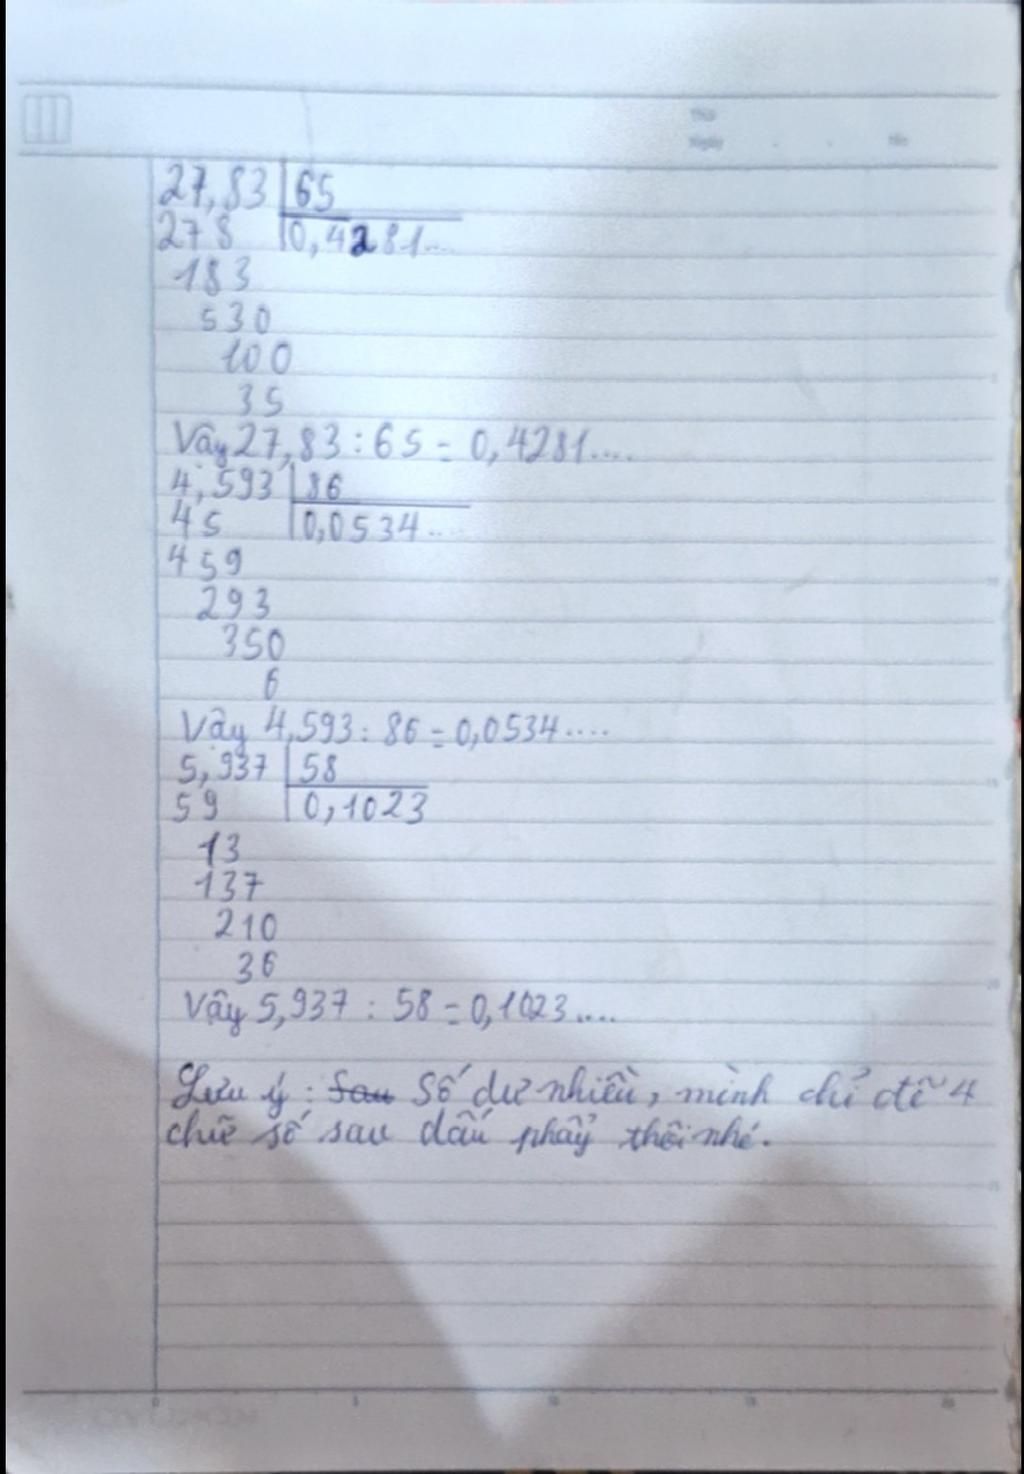 Thứ
Ngày . . No
27,83 65
278 0,4281...
183
530
100
35
Vậy 27,83 : 65 = 0,4281....
4,593 86
45 0,0534...
459
293
350
6
Vậy 4,593 : 86 = 0,0534....
5,937 58
59 0,1023
13
137
210
36
Vậy 5,937 : 58 = 0,1023....
Lưu ý : Sau Số dư nhiều, mình chỉ để 4
chữ số sau dấu phẩy thôi nhé.
0 5 10 15 20